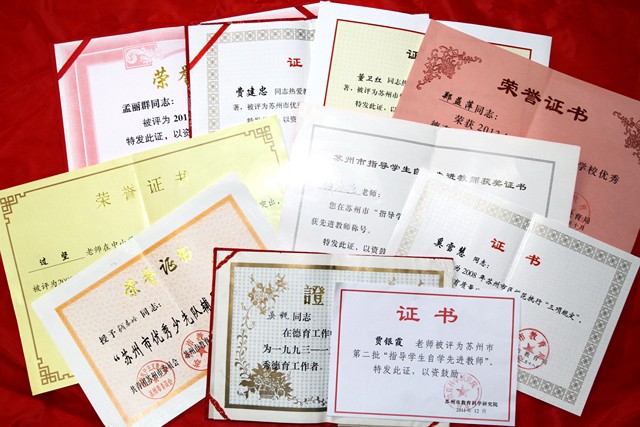 荣誉
孟丽群同志：
被评为201
特发此证，以资
证
费建忠 同志热爱教
著，被评为苏州市优
特发此证，以资
证
董卫红 同志热
著，被评为苏州市
特发此证，以资
荣誉证书
郑益萍同志：
荣获2012
学校优秀
荣誉证书
老师在中山
被评为200
苏州市指导学生自
先进教师获奖证书
老师：
您在苏州市“指导学
获先进教师称号。
特发此证，以资鼓
证书
吴雪慧 同志：
为2008年苏州
荣誉证书
授予
同志：
“苏州市优秀少先队辅
共青团苏州市委员会
證
同志
在德育工作
为一九九三—一
秀德育工作者。
证书
贾银霞 老师被评为苏州市
第二批“指导学生自学先进教师”。
特发此证，以资鼓励。
苏州市教育科学研究院
2011年12月